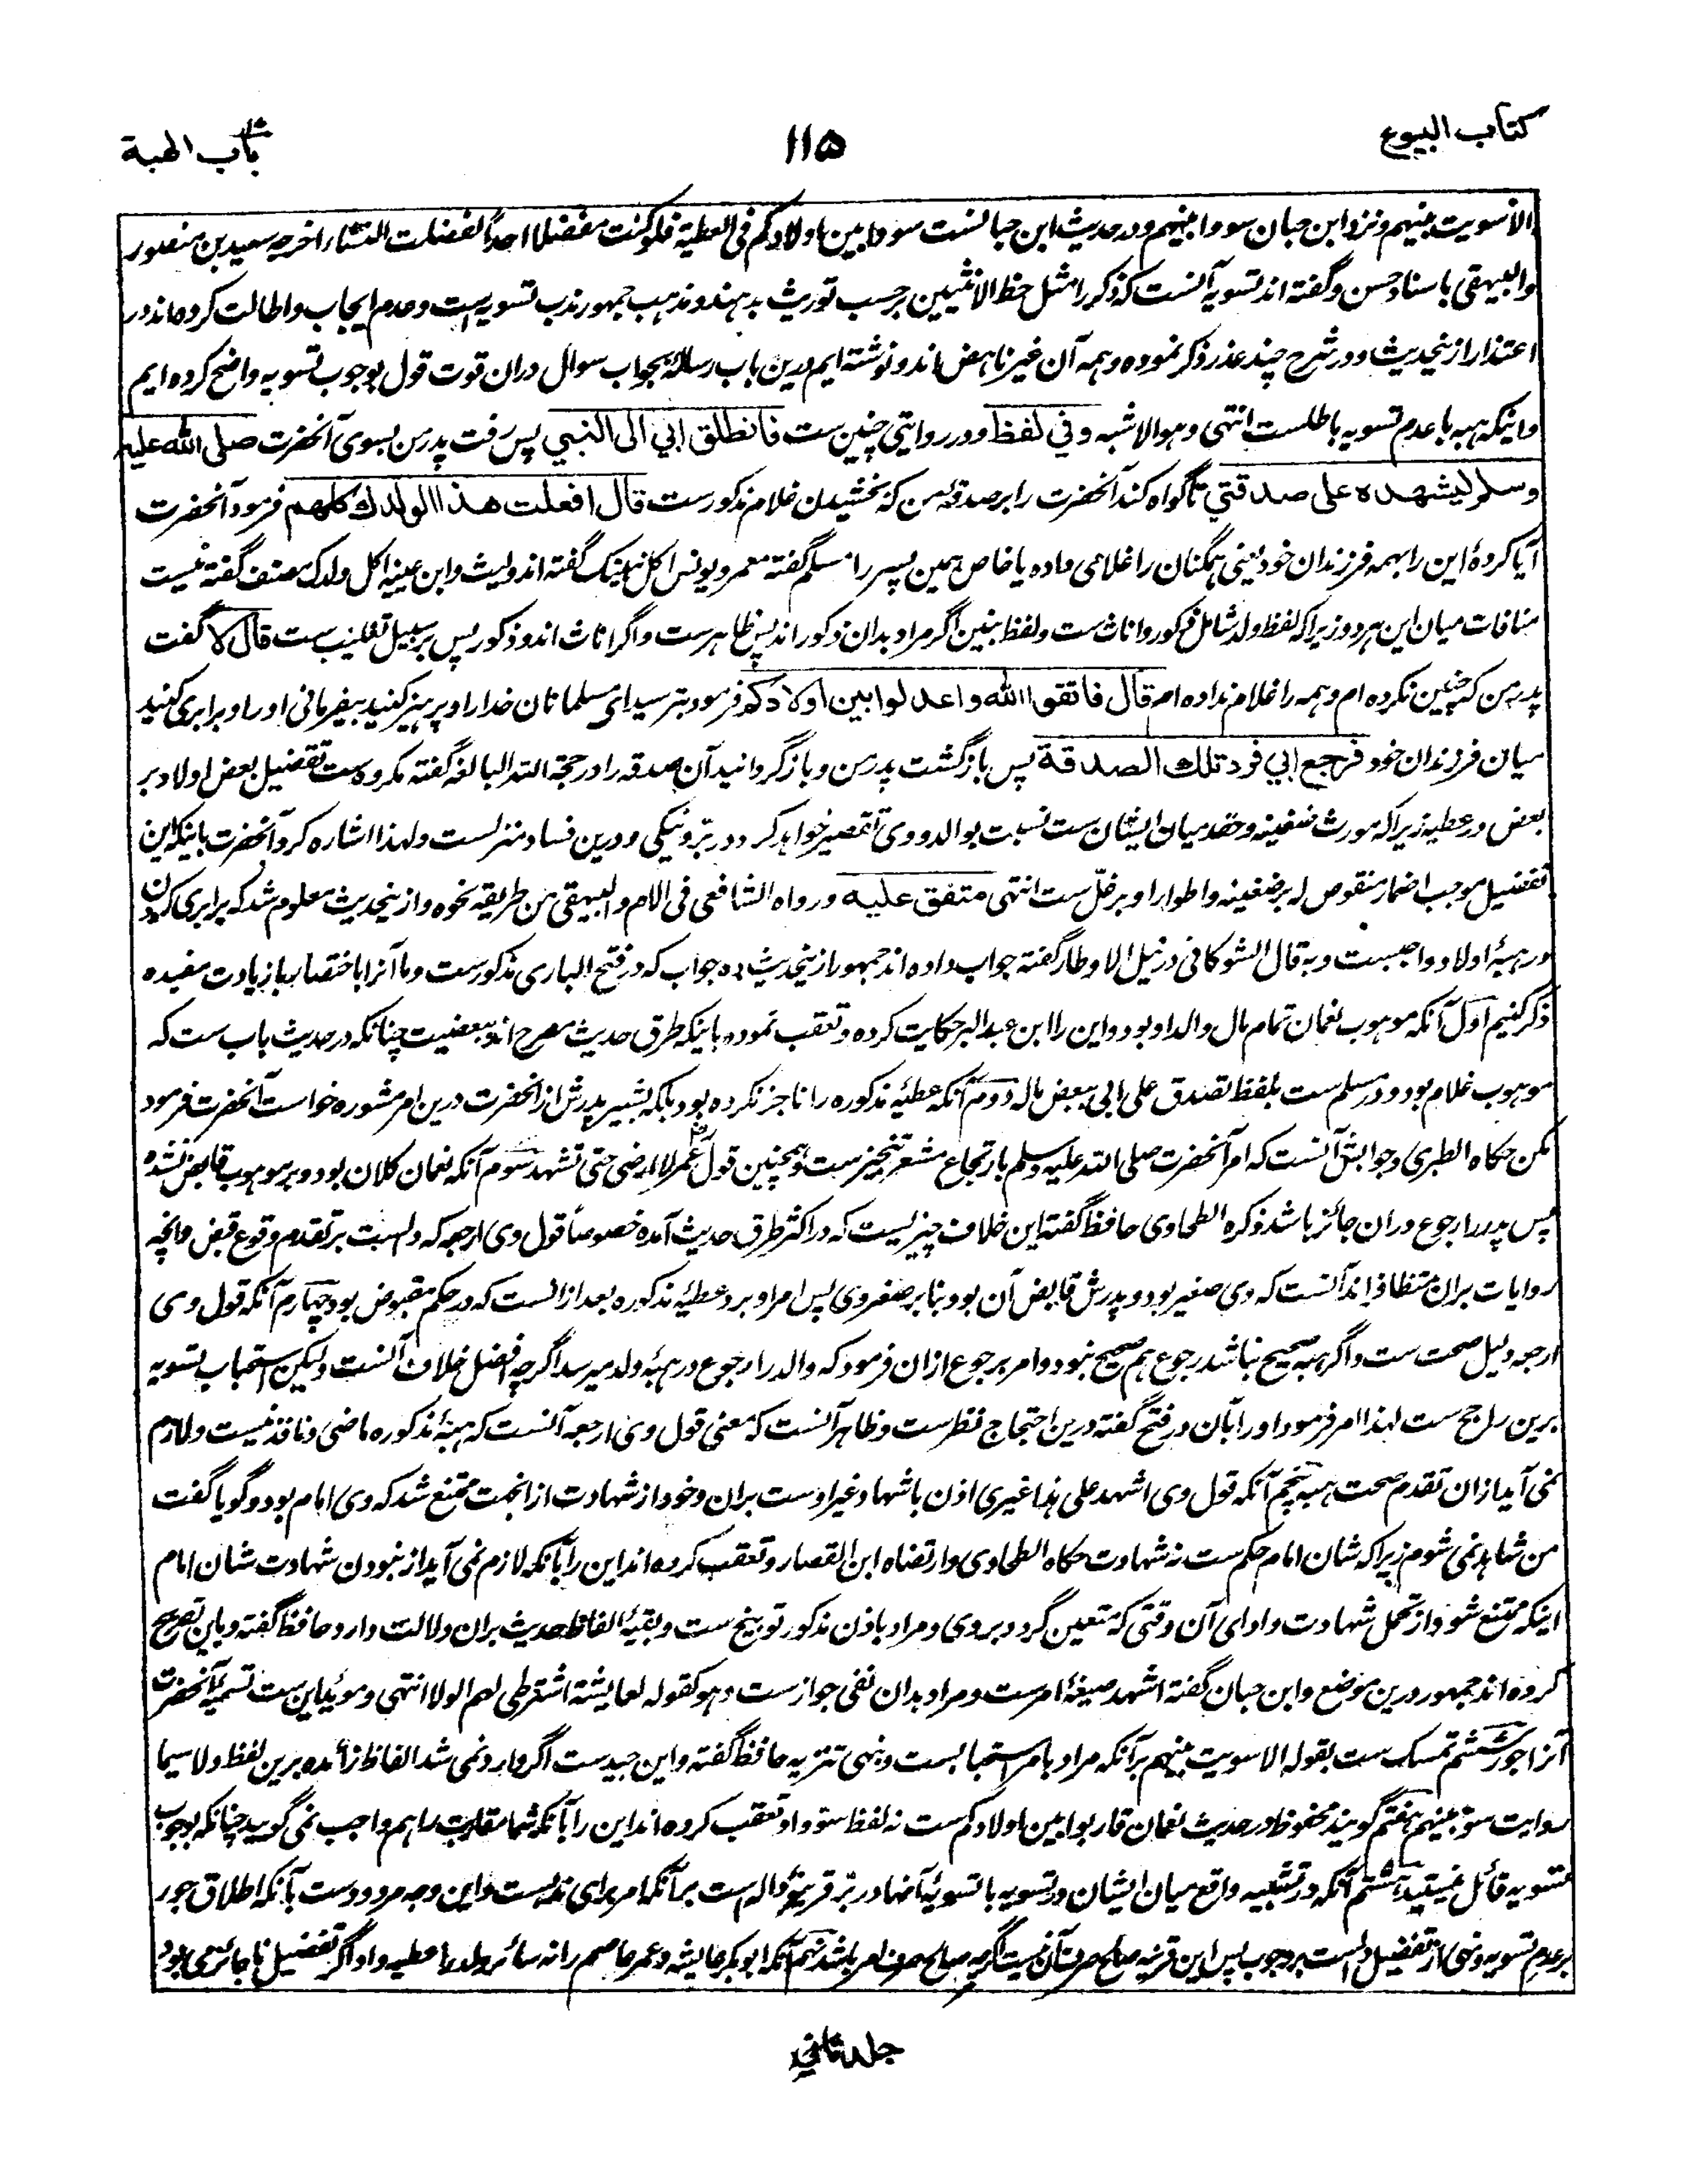 کتاب البیوع
۱۱۵
باب الهبة
الا سویت بینهم و نزد ابن حبان سووا بینهم و در حدیث ابن عباسست سووا بین اولادکم فی العطیة فلو کنت مفضلا احداً لفضلت النساء اخرجه سعید بن منصور
والبیهقی باسناد حسن و گفته اند تسویه آنست که ذکر را مثل حظ الانثیین بر حسب توریث بدهند و مذهب جمهور ندب تسویه است و عدم ایجاب و اطالت کرده اند در
اعتذار از ینحدیث و در شرح چند عذر ذکر نموده و همه آن غیر ناهض اند و نوشته ایم درین باب رساله بجواب سوال دران قوت قول بوجوب تسویه واضح کرده ایم
و اینکه هبه با عدم تسویه باطلست انتهی و هو الاشبه و في لفظ و در روایتی چنین ست فانطلق ابي الی النبي پس رفت پدر من بسوی آنحضرت صلی الله علیه
وسلم لیشهده علی صدقتي تا گواه کند آنحضرت را بر صدقه من که بخشیدن غلام مذکورست قال افعلت هذا بولدك كلهم فرمود آنحضرت
آیا کردهٔ این را بهمه فرزندان خود یعنی همگنان را غلامی داده یا خاص همین پسر را مسلم گفته معمر و یونس اکل بنیک گفته اند و لیث و ابن عیینه اکل ولدک مصنف گفته نیست
منافات میان این هر دو زیرا که لفظ ولد شامل ذکور و اناث ست و لفظ بنین اگر مراد بدان ذکور اند پس ظاهرست و اگر اناث اند و ذکور پس بر سبیل تغلیب ست قال لا گفت
پدر من که چنین نکرده ام و همه را غلام نداده ام قال فاتقوا الله واعدلوا بین اولادکم فرمود بترسید ای مسلمانان خدا را و پرهیز کنید بیفرمانی او را و برابری کنید
میان فرزندان خود فرجع ابي فرد تلك الصدقة پس بازگشت پدر من و باز گردانید آن صدقه را در حجة الله البالغه گفته مکروه ست تفضیل بعض اولاد بر
بعض در عطیه زیرا که مورث ضغینه و حقد میان ایشان ست نسبت بوالد و وی تقصیر خواهد کرد در برّ و نیکی و درین فساد منزلست و لهذا اشاره کرد آنحضرت باینکه این
تفضیل موجب اضمار منقوص له بر ضغینه و اطوار او بر غلّ ست انتهی متفق علیه و رواه الشافعی فی الام والبیهقی من طریقه نحوه و از ینحدیث معلوم شد که برابری کردن
در هبهٔ اولاد واجبست و به قال الشوکانی در نیل الاوطار گفته جواب داده اند جمهور از ینحدیث بده جواب که در فتح الباری مذکورست و ما آنرا باختصار با زیادت مفیده
ذکر کنیم اول آنکه موهوب نعمان تمام مال والد او بود و این را ابن عبد البر حکایت کرده و تعقب نموده باینکه طرق حدیث مصرح اند ببعضیت چنانکه در حدیث باب ست که
موهوب غلام بود و در مسلم ست بلفظ تصدق علی ابی ببعض ماله دوم آنکه عطیهٔ مذکوره را ناجز نکرده بود بلکه بشیر پدرش از آنحضرت درین امر مشوره خواست آنحضرت فرمود
مکن حکاه الطبری و جوابش آنست که امر آنحضرت صلی الله علیه وسلم بارتجاع مشعر بتنجیزست و همچنین قول عمره لا ارضی حتی تشهد سوم آنکه نعمان کلان بود و بر موهوب قابض نشده
پس پدر را رجوع دران جائز باشد ذکره الطحاوی حافظ گفته این خلاف چیزیست که در اکثر طرق حدیث آمده خصوصاً قول وی ارجعه که دالست بر تقدم وقوع قبض و آنچه
روایات بران متظافر اند آنست که وی صغیر بود و پدرش قابض آن بود بنا بر صغر وی پس امر او برد عطیهٔ مذکوره بعد ازانست که در حکم مقبوض بود چهارم آنکه قول وی
ارجعه دلیل صحت ست و اگر هبه صحیح نباشد رجوع هم صحیح نبود و امر برجوع ازان فرمود که والد را رجوع در هبهٔ ولد میرسد اگرچه افضل خلاف آنست و لیکن استحباب تسویه
برین راجح ست لهذا امر فرمود او را بآن در فتح گفته درین احتجاج نظرست و ظاهر آنست که معنی قول وی ارجعه آنست که هبهٔ مذکوره ماضی و نافذ نیست و لازم
نمی آید ازان تقدم صحت هبه پنجم آنکه قول وی اشهد علی هذا غیری اذن باشهاد غیر اوست بران و خود از شهادت ازانجهت ممتنع شد که وی امام بود و گویا گفت
من شاهد نمی شوم زیرا که شان امام حکم ست نه شهادت حکاه الطحاوی وارتضاه ابن القصار و تعقب کرده اند این را بآنکه لازم نمی آید از نبودن شهادت شان امام
اینکه ممتنع شود از تحمل شهادت و ادای آن وقتی که متعین گردد بروی و مراد باذن مذکور توبیخ ست و بقیهٔ الفاظ حدیث بران دلالت دارد حافظ گفته و باین تصریح
کرده اند جمهور درین موضع و ابن حبان گفته اشهد صیغهٔ امرست و مراد بدان نفی جوازست و هو کقوله لعایشة اشترطی لهم الولا انتهی و موید این ست تسمیهٔ آنحضرت
آنرا جور ششم تمسک ست بقوله الا سویت بینهم بر آنکه مراد بامر استحبابست و نهی تنزیه حافظ گفته و این جیدست اگر وارد نمی شد الفاظ زائده برین لفظ و لا سیما
روایت سوّ بینهم هفتم گویند محفوظ در حدیث نعمان قاربوا بین اولادکم ست نه لفظ سووا و تعقب کرده اند این را بآنکه شما مقاربت را هم واجب نمی گویید چنانکه بوجوب
تسویه قائل نیستید هشتم آنکه در تشبیه واقع میان ایشان در تسویه با تسویهٔ آنها در برّ قرینهٔ داله است بر آنکه امر برای ندبست و این وجه مردودست بآنکه اطلاق جور
بر عدم تسویه و نهی از تفضیل دالست بر وجوب پس این قرینه صالح صرف آن نیست اگرچه صالح صرف امر باشد نهم آنکه ابوبکر عایشه و عمر عاصم را نه سائر ولد را عطیه داد اگر تفضیل ناجائز می بود
جلد ثاني